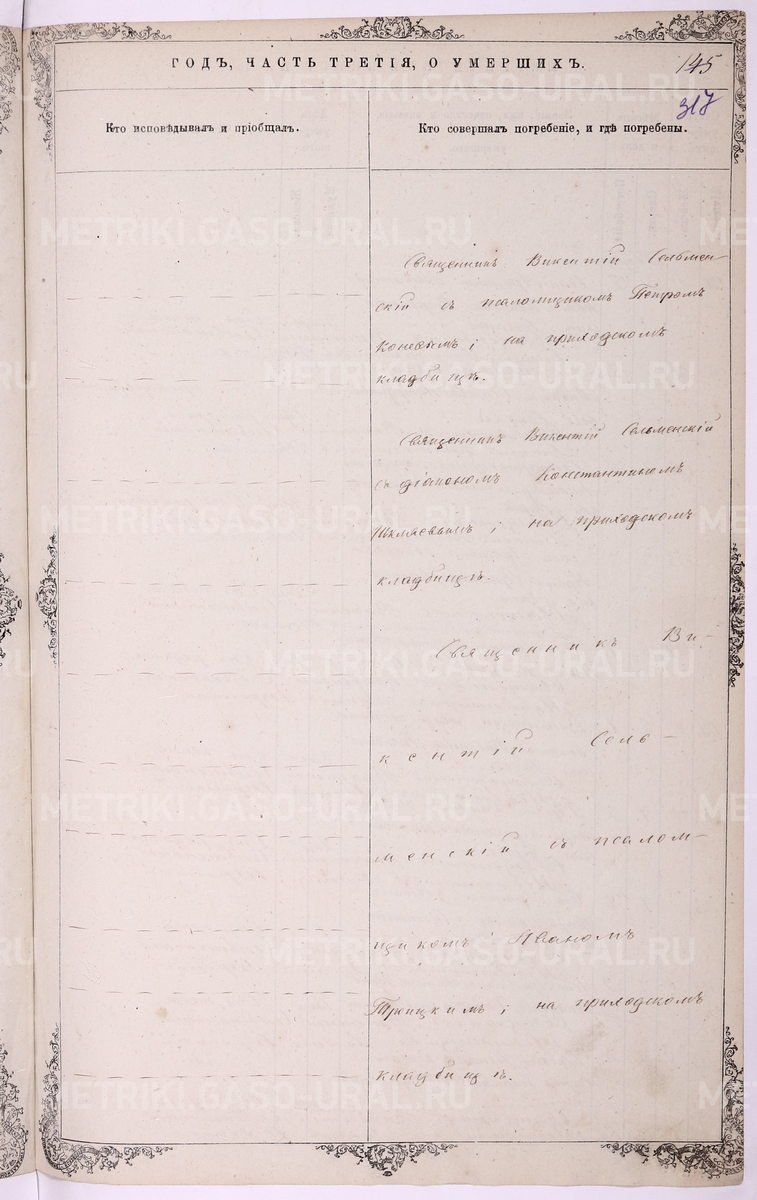 ГОДЪ, ЧАСТЬ ТРЕТІЯ, О УМЕРШИХЪ.
145
317
Кто исповѣдывалъ и пріобщалъ.
Кто совершалъ погребеніе, и гдѣ погребены.
Священникъ Викентій Сельмен-
скій съ псаломщикомъ Петромъ
на приходскомъ
кладбищѣ.
Священникъ Викентій Сельменскій
съ діакономъ Константиномъ
Шкляевымъ; на приходскомъ
кладбищѣ.
Священникъ Ви-
кентій Сель-
менскій съ псалом-
щикомъ Иваномъ
Троицкимъ; на приходскомъ
кладбищѣ.
METRIKI.GASO-URAL.RU